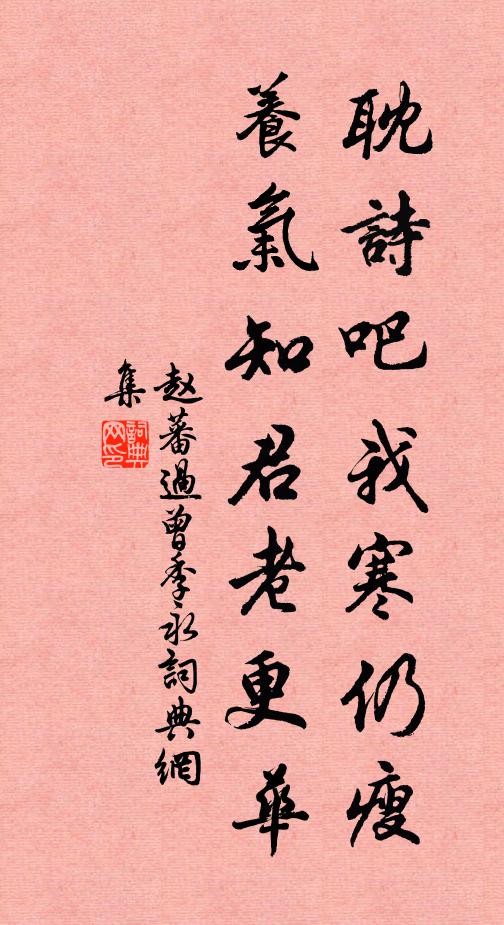 耽詩吧我寒仍瘦
養氣知君老更華
赵蕃過曾季永詞典網
集
詞典网印